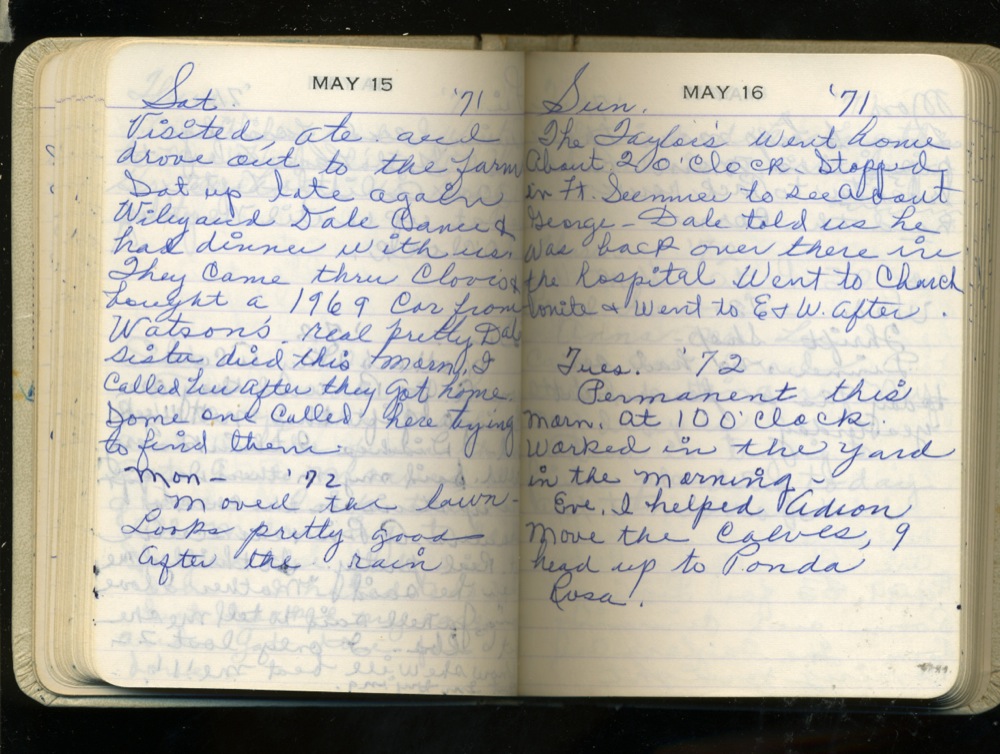 MAY 15
Sat '71
Visited, ate and
drove out to the farm
Sat up late again
Wiley and Dale Came &
had dinner with us.
They Came thru Clovis &
bought a 1969 Car from
Watson's. real pretty Dale
sista died this morn, I
Called her after they got home.
Some one Called here trying
to find them.
Mon- '72
Moved the lawn-
Looks pretty good
after the rain
MAY 16
Sun. '71
The Taylor's Went home
About 2 O'Clock. Stopped
in Ft. Sumner to see About
George - Dale told us he
was back over there in
the hospital Went to Church
tonite & Went to E & W. after.
Tues. '72
Permanent this
morn. at 10 O'Clock.
Worked in the yard
in the morning-
Eve. I helped
Move the Calves, 9
head up to Ponda
Rosa.